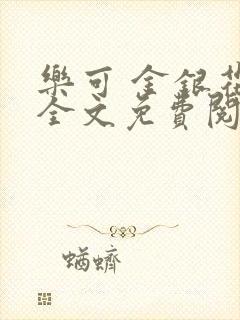 樂可 金銀花
全文免費閱
蝤蠐